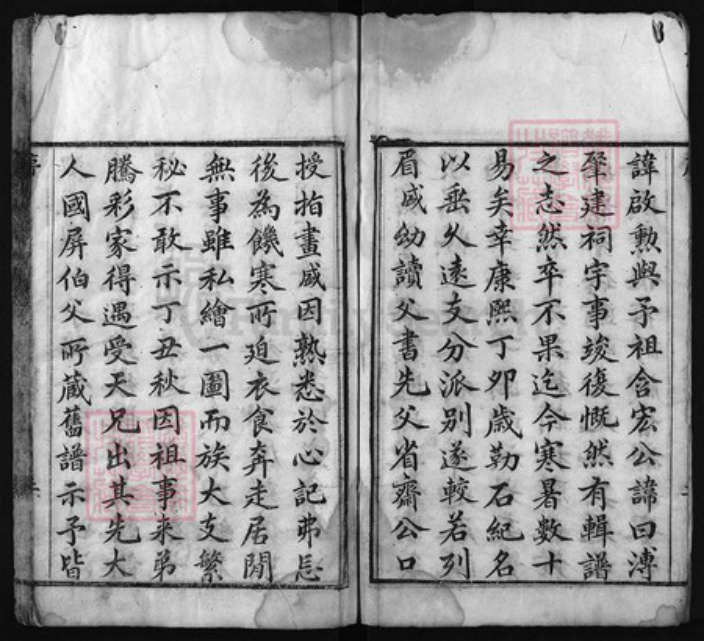 諱啟勲與予祖含宏公諱曰溥
肈建祠宇事竣復慨然有輯譜
之志然卒不果迄今寒暑數十
易矣幸康熙丁卯歲勒石紀名
以垂久遠支分派別遂較若列
眉咸幼讀父書先父省齋公口
授指畫咸因熟悉於心記弗忘
後為饑寒所廹衣食奔走居閒
無事雖私繪一圖而族大支繁
秘不敢示丁丑秋因祖事来弟
騰彩家得遇受天兄出其先大
人國屏伯父所蔵舊譜示予皆